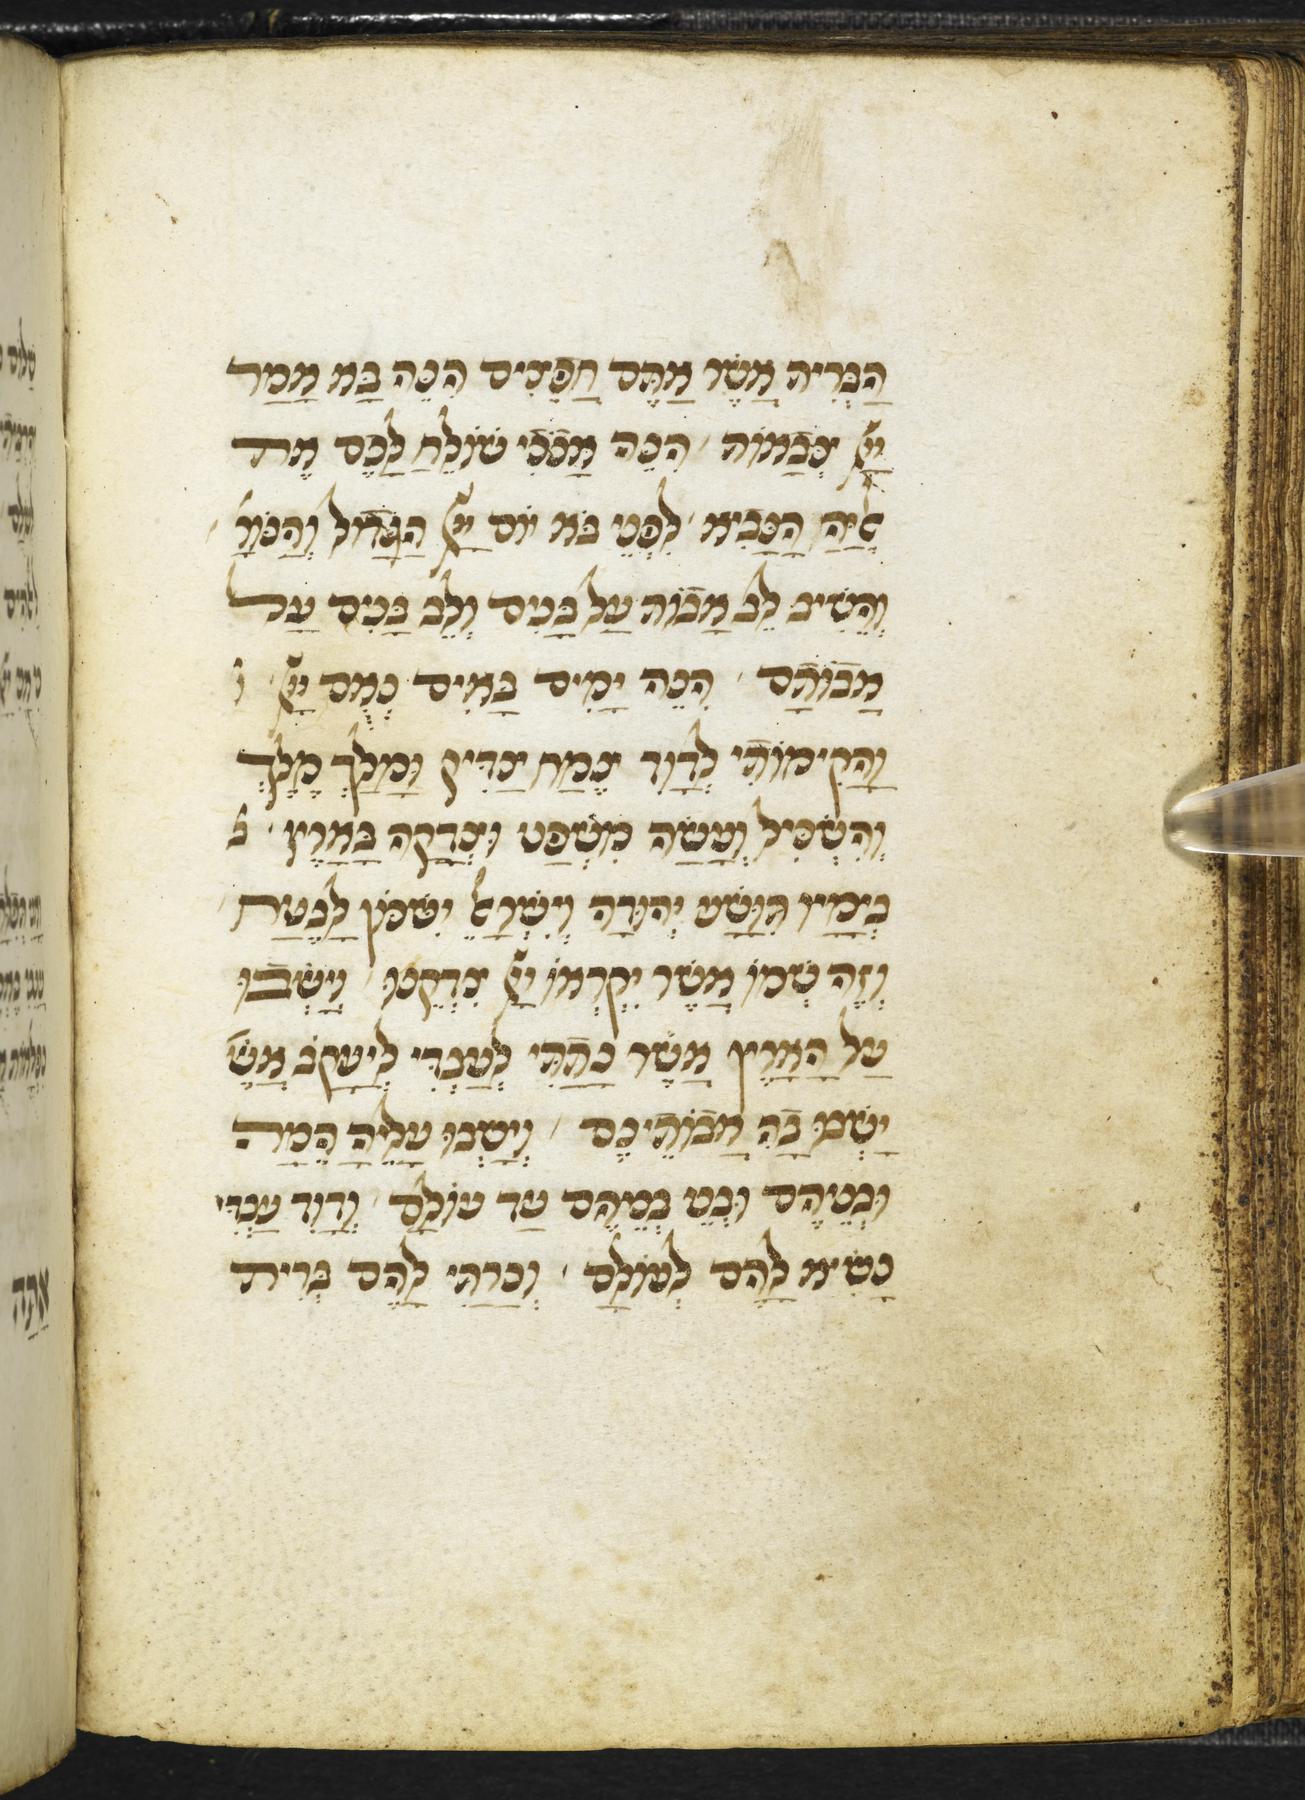 הַבְּרִית אֲשֶׁר אַתֶּם חֲפֵצִים הִנֵּה בָּא אָמַר
יְיָ צְבָאוֹת הִנֵּה אָנֹכִי שׁוֹלֵחַ לָכֶם אֵת
אֵלִיָּה הַנָּבִיא לִפְנֵי בֹּא יוֹם יְיָ הַגָּדוֹל וְהַנּוֹרָא
וְהֵשִׁיב לֵב אָבוֹת עַל בָּנִים וְלֵב בָּנִים עַל
אֲבוֹתָם הִנֵּה יָמִים בָּאִים נְאֻם יְיָ
וַהֲקִימוֹתִי לְדָוִד צֶמַח צַדִּיק וּמָלַךְ מֶלֶךְ
וְהִשְׂכִּיל וְעָשָׂה מִשְׁפָּט וּצְדָקָה בָּאָרֶץ
בְּיָמָיו תִּוָּשַׁע יְהוּדָה וְיִשְׂרָאֵל יִשְׁכֹּן לָבֶטַח
וְזֶה שְׁמוֹ אֲשֶׁר יִקְרְאוֹ יְיָ צִדְקֵנוּ וְיָשְׁבוּ
עַל הָאָרֶץ אֲשֶׁר נָתַתִּי לְעַבְדִּי לְיַעֲקֹב אֲשֶׁר
יָשְׁבוּ בָהּ אֲבוֹתֵיכֶם וְיָשְׁבוּ עָלֶיהָ הֵמָּה
וּבְנֵיהֶם וּבְנֵי בְנֵיהֶם עַד עוֹלָם וְדָוִד עַבְדִּי
נָשִׂיא לָהֶם לְעוֹלָם וְכָרַתִּי לָהֶם בְּרִית